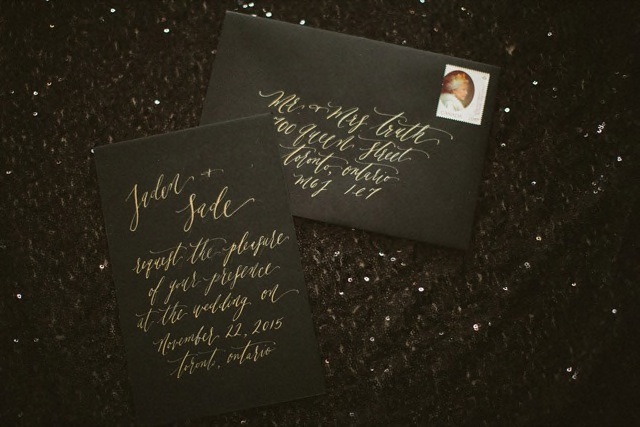 Jaden +
Sade
request the pleasure
of your presence
at the wedding on
November 22, 2015
toronto, ontario
Mr. + Mrs. Truth
700 Queen Street
toronto, ontario
M6J 1E7